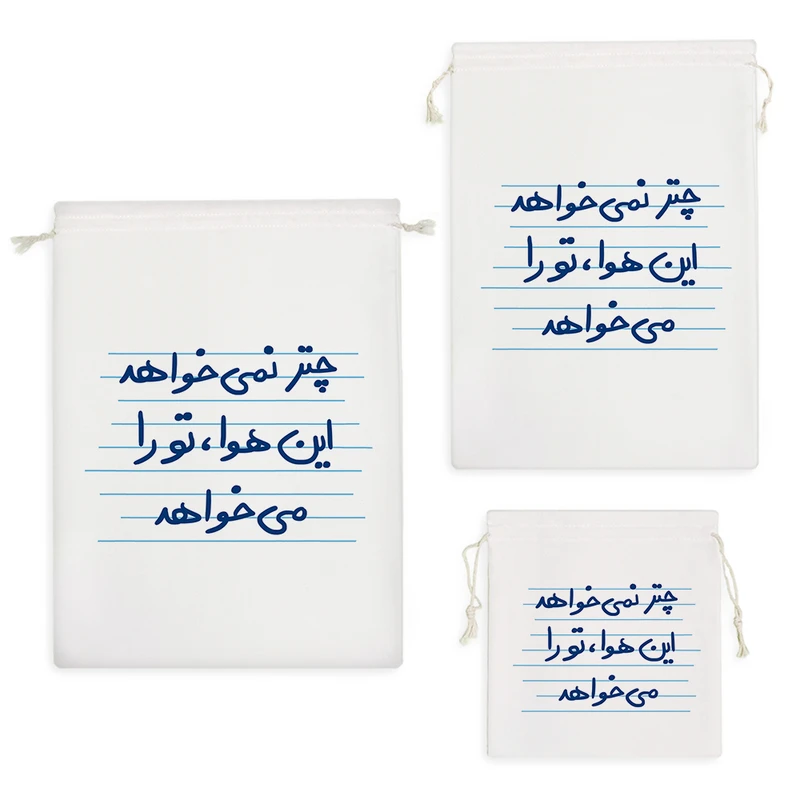 چتر نمی‌خواهد
این هوا، تو را
می‌خواهد
چتر نمی‌خواهد
این هوا، تو را
می‌خواهد
چتر نمی‌خواهد
این هوا، تو را
می‌خواهد